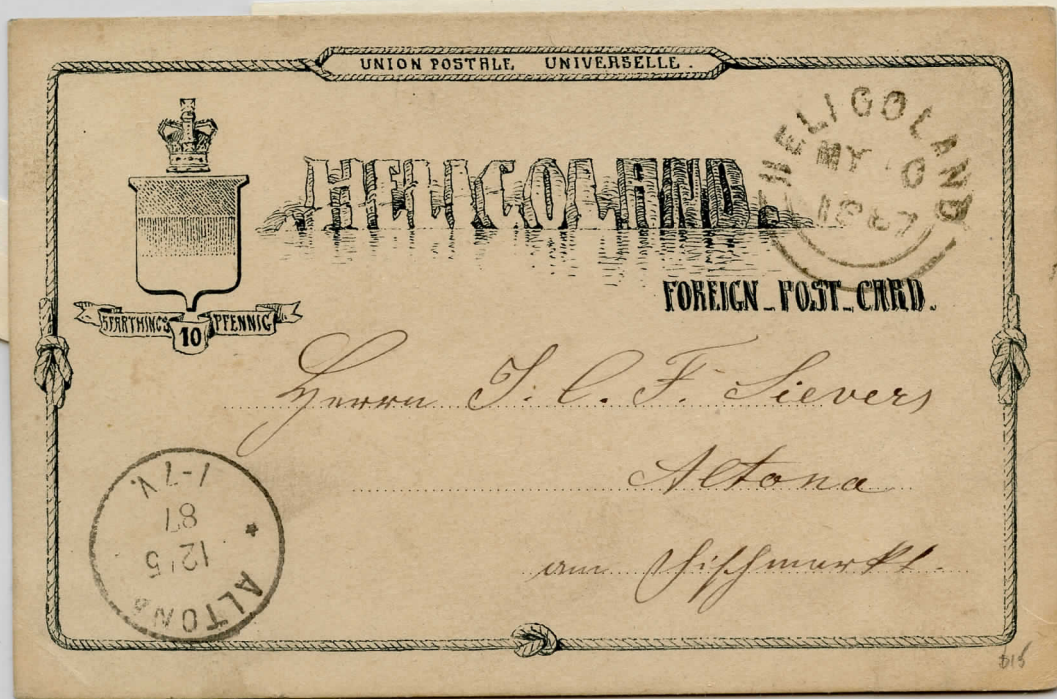 UNION POSTALE UNIVERSELLE.
HELIGOLAND
HELIGOLAND
MY 10
1887
FOREIGN_POST_CARD.
5 FARTHINGS 10 PFENNIG
Herrn J. C. F. Sievers
Altona
am Fischmarkt.
ALTONA
12/5
87
1-7V.